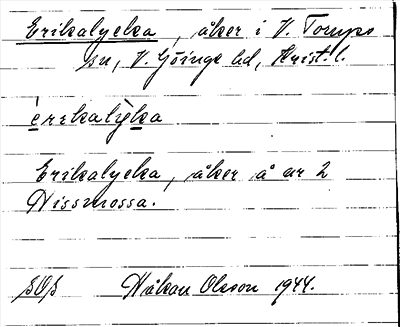 Erikalycka, åker i V. Torups
sn, V. Göinge hd, Krist. l.
èrrkalỳka
Erikalycka, åker å ur 2
Nissmossa.
sOs Håkan Olsson 1944.